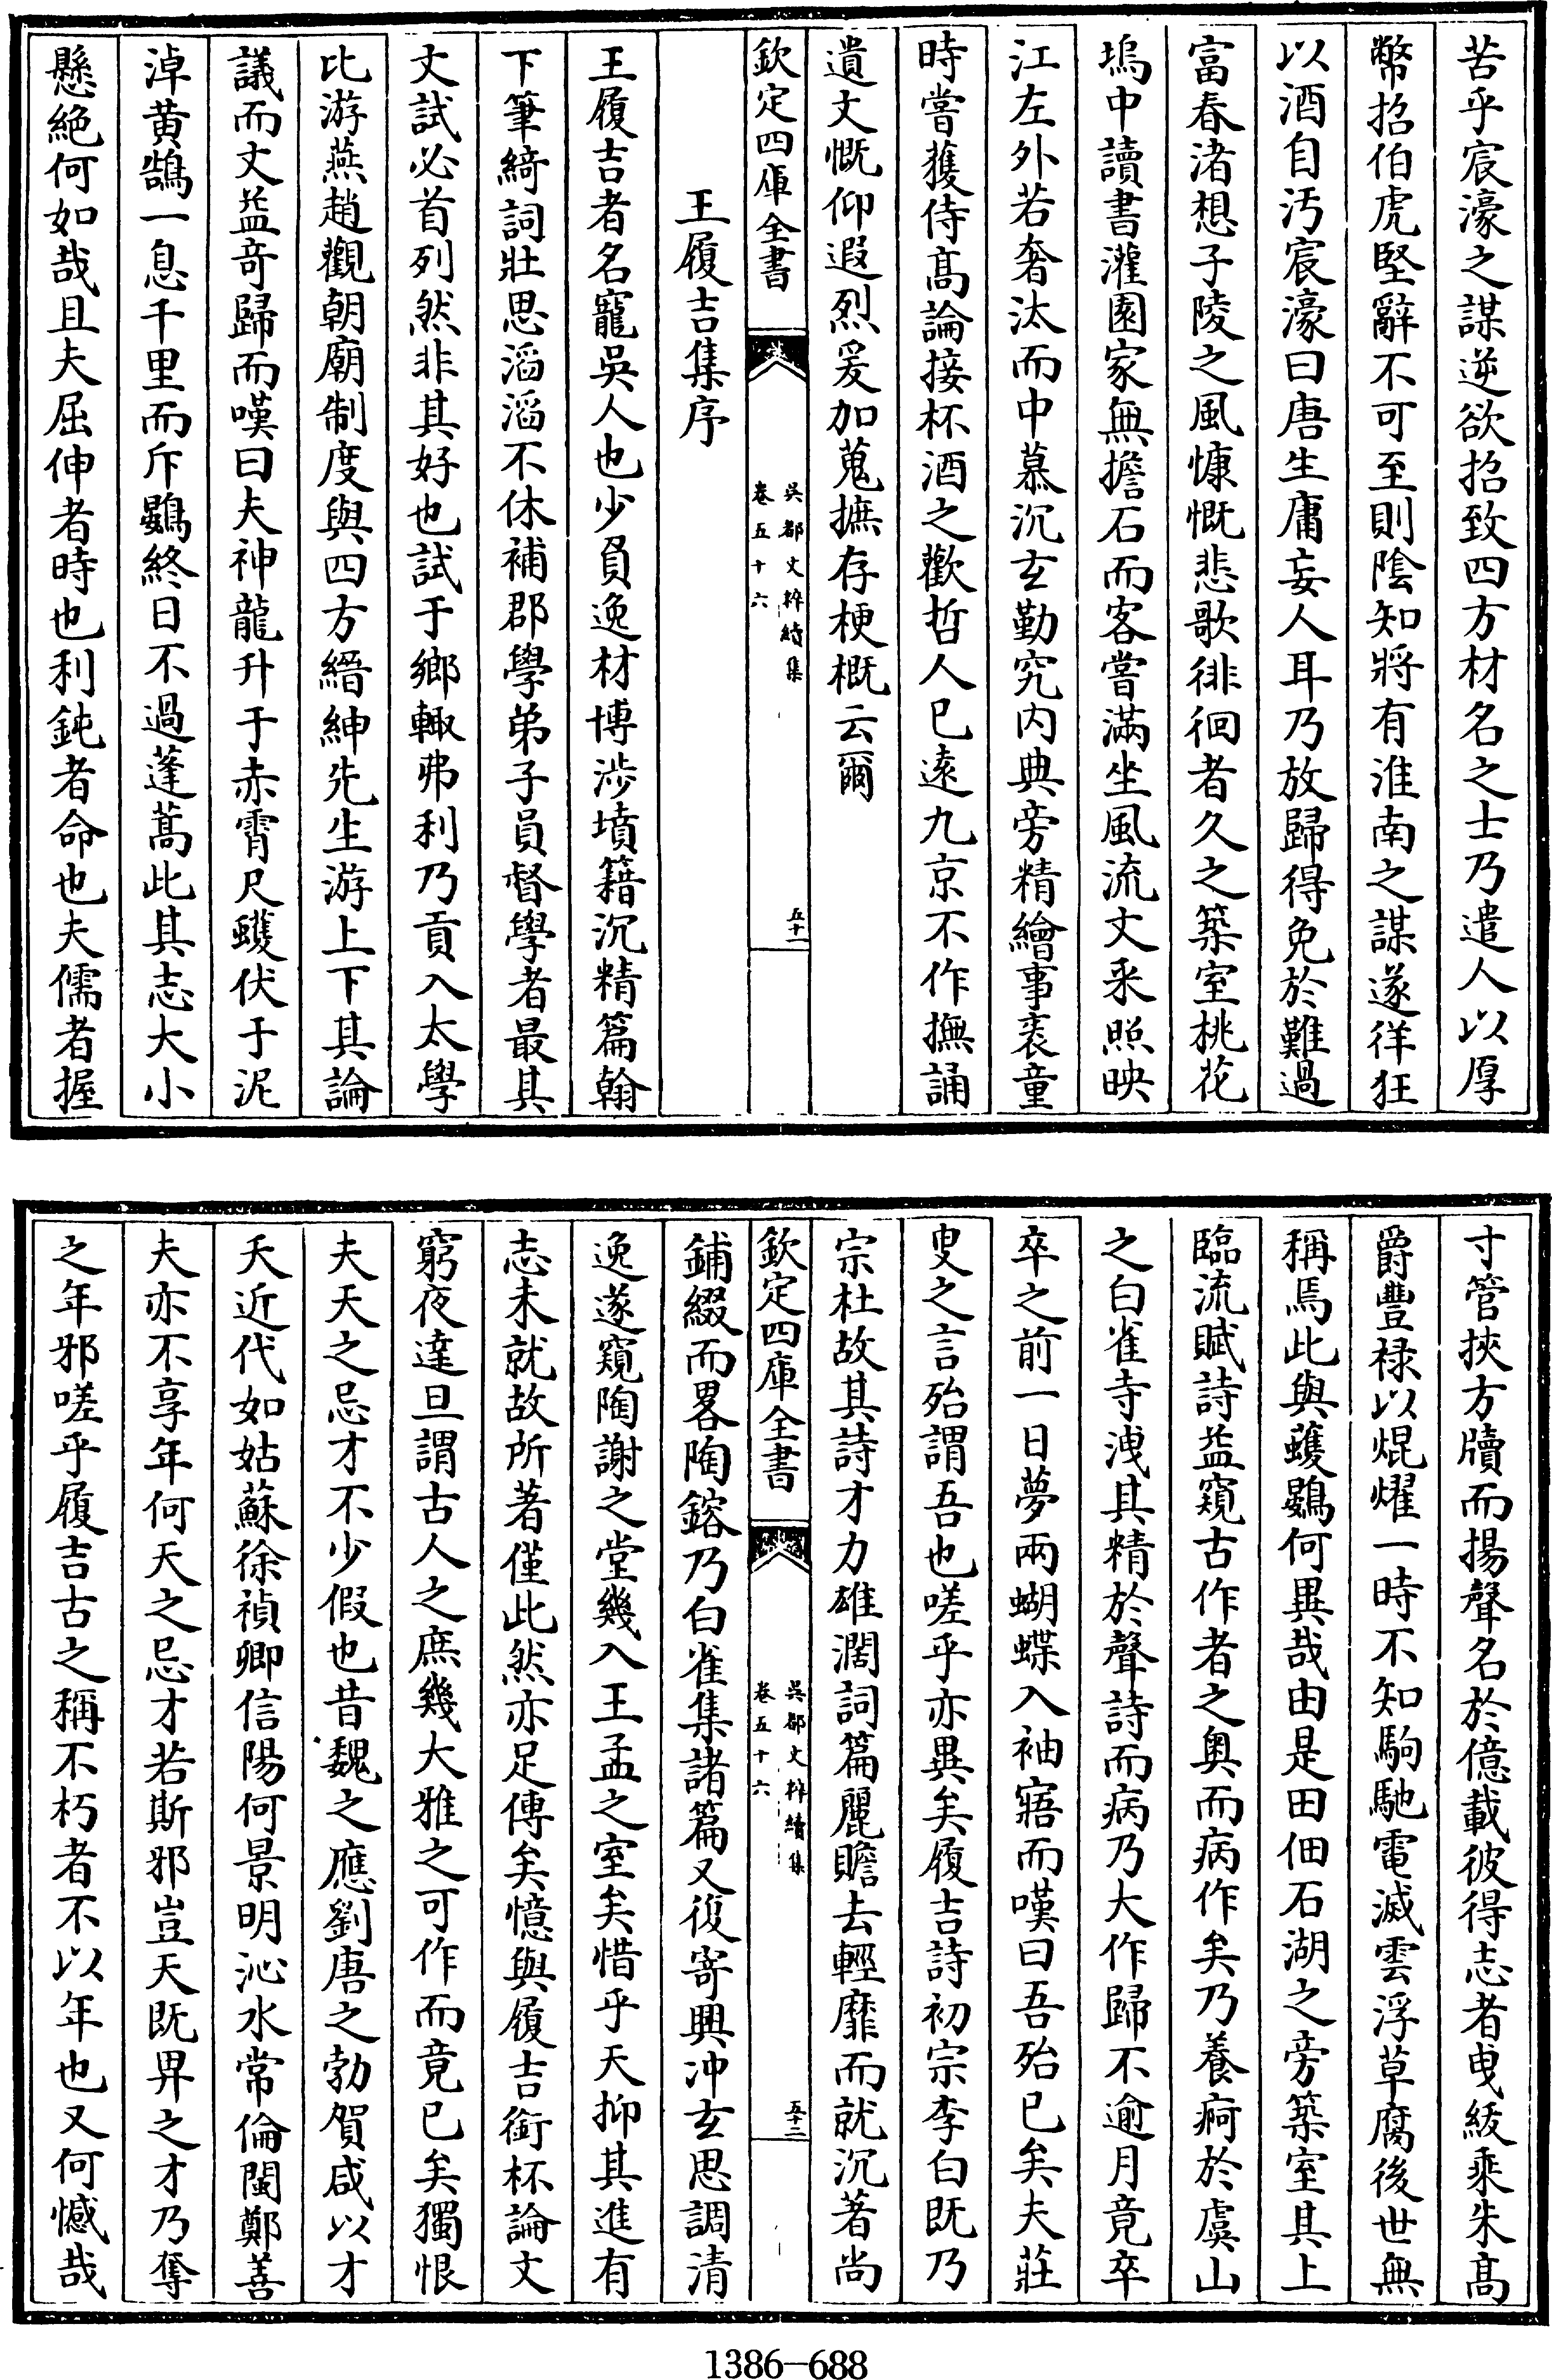 苦乎宸濠之謀逆欲招致四方材名之士乃遣人以厚
幣招伯虎堅辭不可至則陰知將有淮南之謀遂佯狂
以酒自汚宸濠曰唐生庸妄人耳乃放歸得免於難過
富春渚想子陵之風慷慨悲歌徘徊者久之築室桃花
塢中讀書灌園家無擔石而客嘗滿坐風流文采照映
江左外若奢汰而中慕沉玄勤究内典旁精繪事袠童
時嘗獲侍髙論接杯酒之歡哲人已逺九京不作撫誦
遺文慨仰遐烈爰加蒐摭存梗概云爾
欽定四庫全書
吳都文粹續集
卷五十六
五十一
王履吉集序
王履吉者名寵吳人也少負逸材博涉墳籍沉精篇翰
下筆綺詞壯思滔滔不休補郡學弟子員督學者最其
文試必首列然非其好也試于鄉輙弗利乃貢入太學
比游燕趙觀朝廟制度與四方縉紳先生游上下其論
議而文益竒歸而嘆曰夫神龍升于赤霄尺蠖伏于泥
淖黄鵠一息千里而斥鷃終日不過蓬蒿此其志大小
懸絶何如哉且夫屈伸者時也利鈍者命也夫儒者握
寸管挾方牘而揚聲名於億載彼得志者曵紱乘朱髙
爵豐禄以焜燿一時不知駒馳電滅雲浮草腐後世無
稱焉此與蠖鷃何異哉由是田佃石湖之旁築室其上
臨流賦詩益窺古作者之奥而病作矣乃養疴於虞山
之白雀寺洩其精於聲詩而病乃大作歸不逾月竟卒
卒之前一日夢兩蝴蝶入袖寤而嘆曰吾殆已矣夫莊
叟之言殆謂吾也嗟乎亦異矣履吉詩初宗李白既乃
宗杜故其詩才力雄濶詞篇麗贍去輕靡而就沉著尚
欽定四庫全書
吳都文粹續集
卷五十六
五十二
鋪綴而畧陶鎔乃白雀集諸篇又復寄興冲玄思調清
逸遂窺陶謝之堂幾入王孟之室矣惜乎天抑其進有
志未就故所著僅此然亦足傳矣憶與履吉銜杯論文
窮夜達旦謂古人之庶幾大雅之可作而竟已矣獨恨
夫天之忌才不少假也昔魏之應劉唐之勃賀咸以才
夭近代如姑蘇徐禎卿信陽何景明沁水常倫閩鄭善
夫亦不享年何天之忌才若斯邪豈天既畀之才乃奪
之年邪嗟乎履吉古之稱不朽者不以年也又何憾哉
1386-688